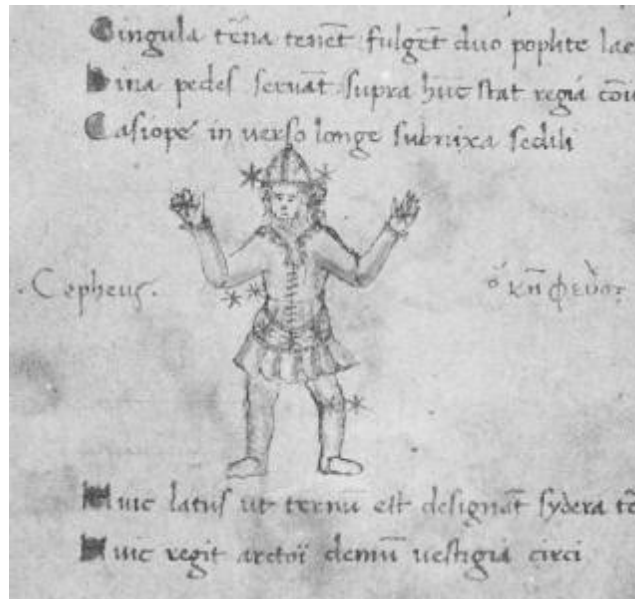 Cingula t̄na tenēt fulgēt duo poplite lae
Bina pedes servāt supra hūc stat regia cōiu
Casiope in verso longe subnixa sedili
·Cepheus·
ὁ κηφεὺσ
Huic latus ut ternū est designāt sydera tē
Huic regit arctoï demū vestigia circi